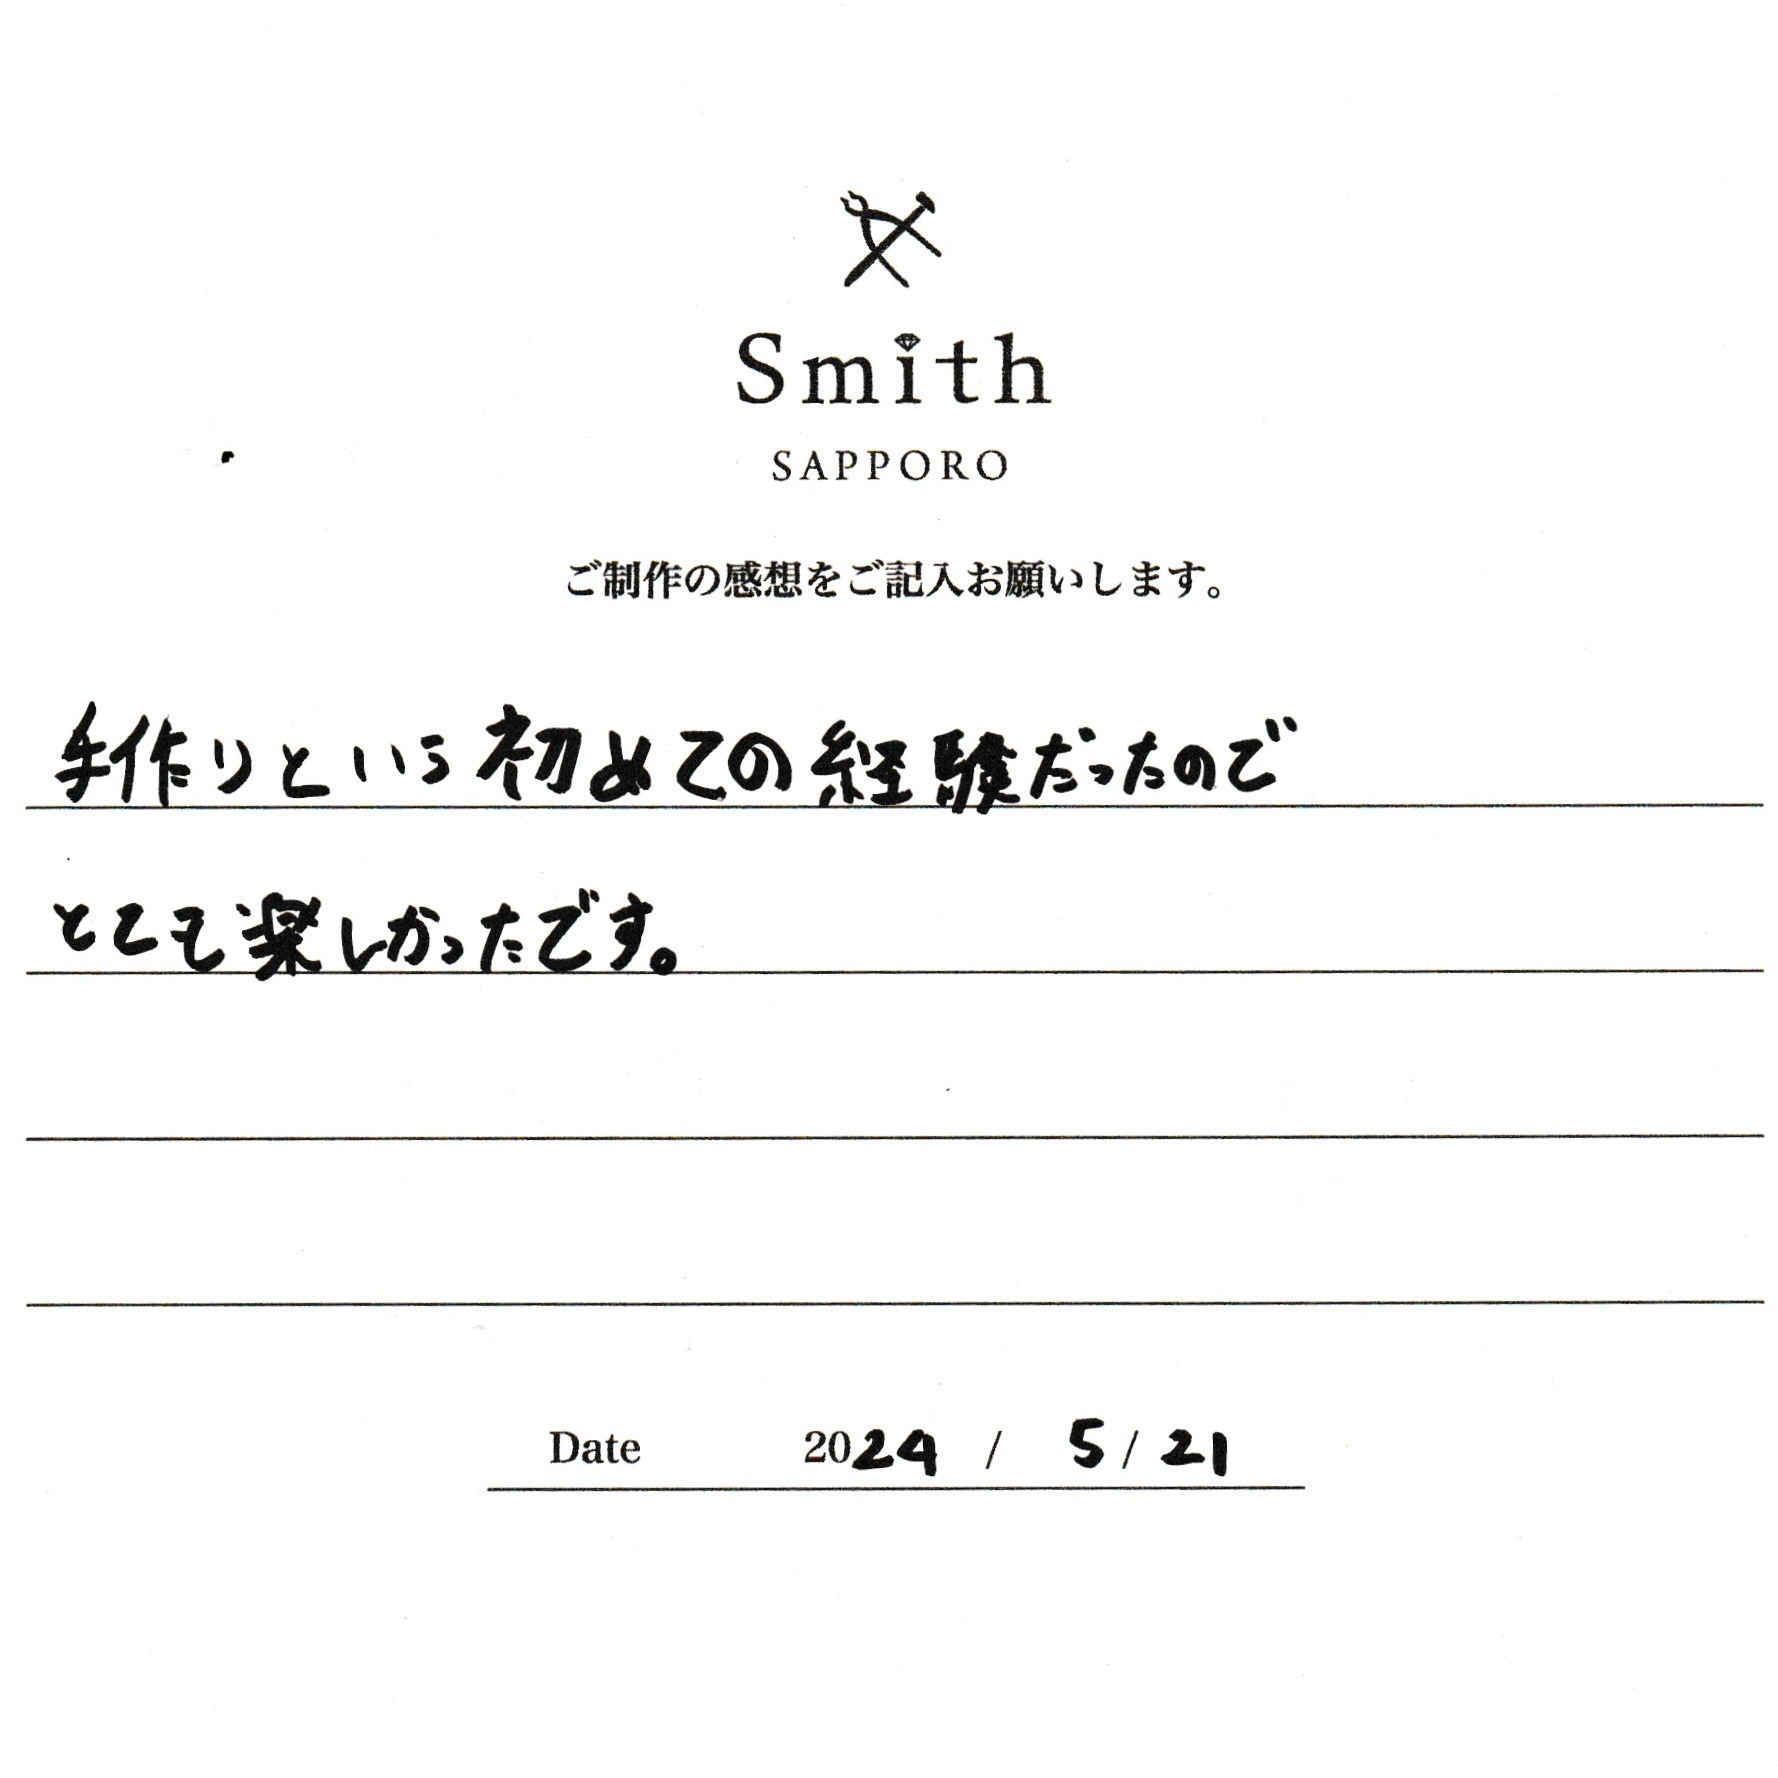 Smith
SAPPORO
ご制作の感想をご記入お願いします。
手作りという初めての経験だったので
とても楽しかったです。
Date 2024 / 5 / 21